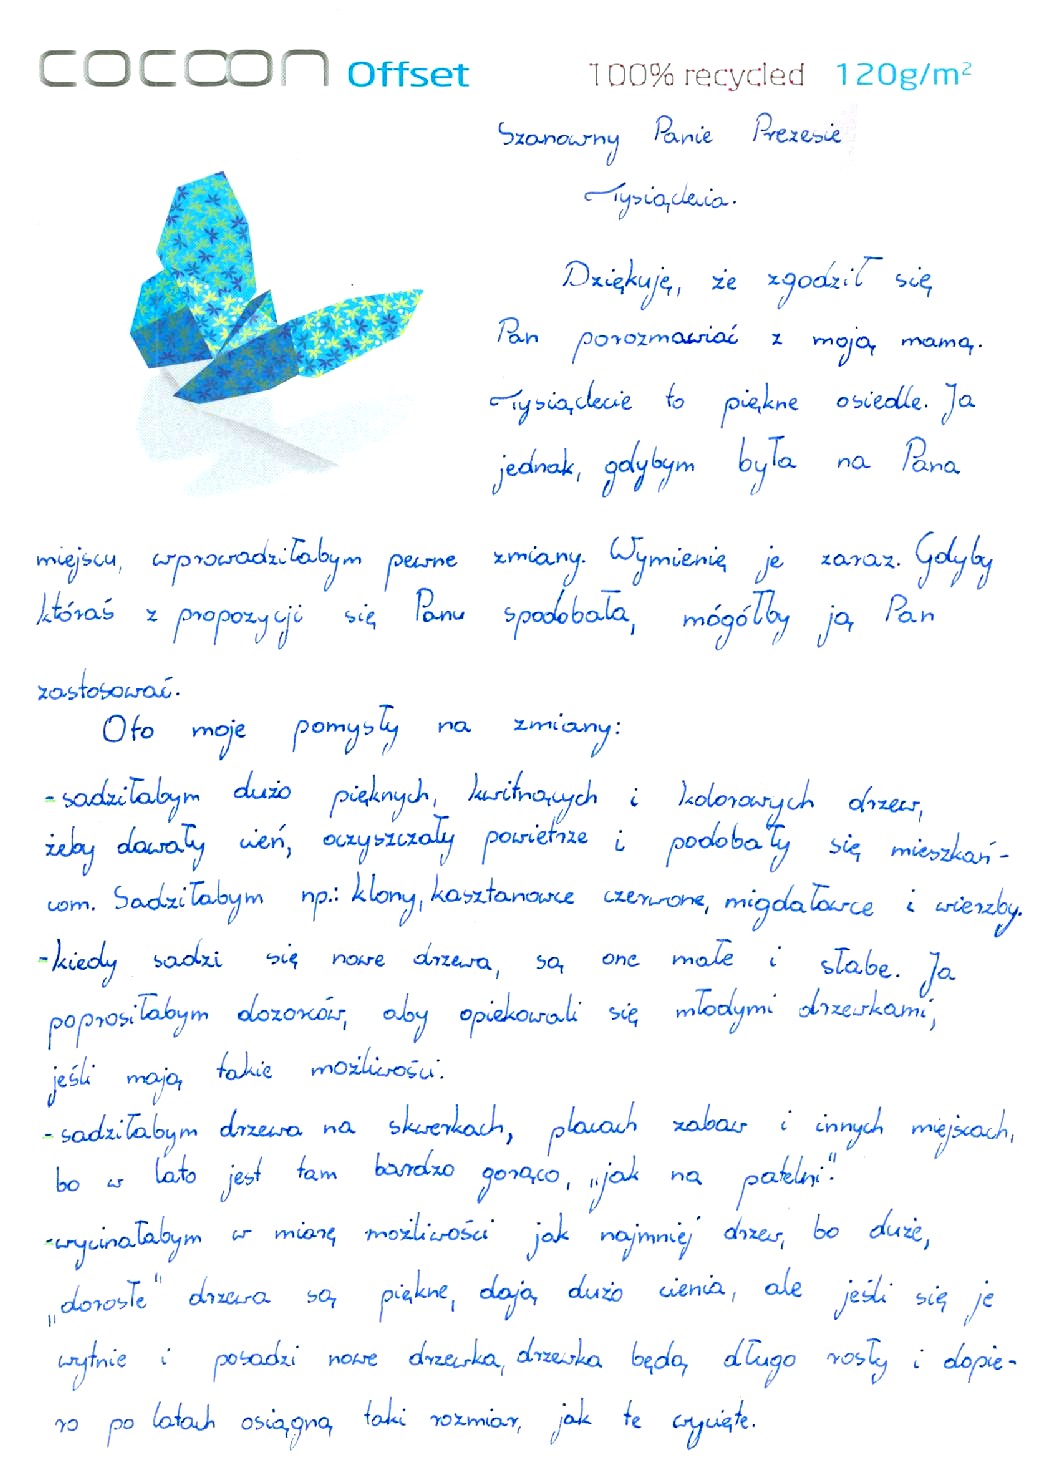 cocoon Offset 100% recycled 120g/m²
Szanowny Panie Prezesie
Tysiąclecia.
Dziękuję, że zgodził się
Pan porozmawiać z moją mamą.
Tysiąclecie to piękne osiedle. Ja
jednak, gdybym była na Pana
miejscu, wprowadziłabym pewne zmiany. Wymienię je zaraz. Gdyby
któraś z propozycji się Panu spodobała, mógółby ją Pan
zastosować.
Oto moje pomysły na zmiany:
-sadziłabym dużo pięknych, kwitnących i kolorowych drzew,
żeby dawały cień, oczyszczały powietrze i podobały się mieszkań-
com. Sadziłabym np.: klony, kasztanowce czerwone, migdałowce i wierzby.
-kiedy sadzi się nowe drzewa, są one małe i słabe. Ja
poprosiłabym dozorców, aby opiekowali się młodymi drzewkami,
jeśli mają takie możliwości.
-sadziłabym drzewa na skwerkach, placach zabaw i innych miejscach,
bo w lato jest tam bardzo gorąco, „jak na patelni".
-wycinałabym w miarę możliwości jak najmniej drzew, bo duże,
„dorosłe" drzewa są piękne, dają dużo cienia, ale jeśli się je
wytnie i posadzi nowe drzewka, drzewka będą długo rosły i dopie-
ro po latach osiągną taki rozmiar, jak te wycięte.